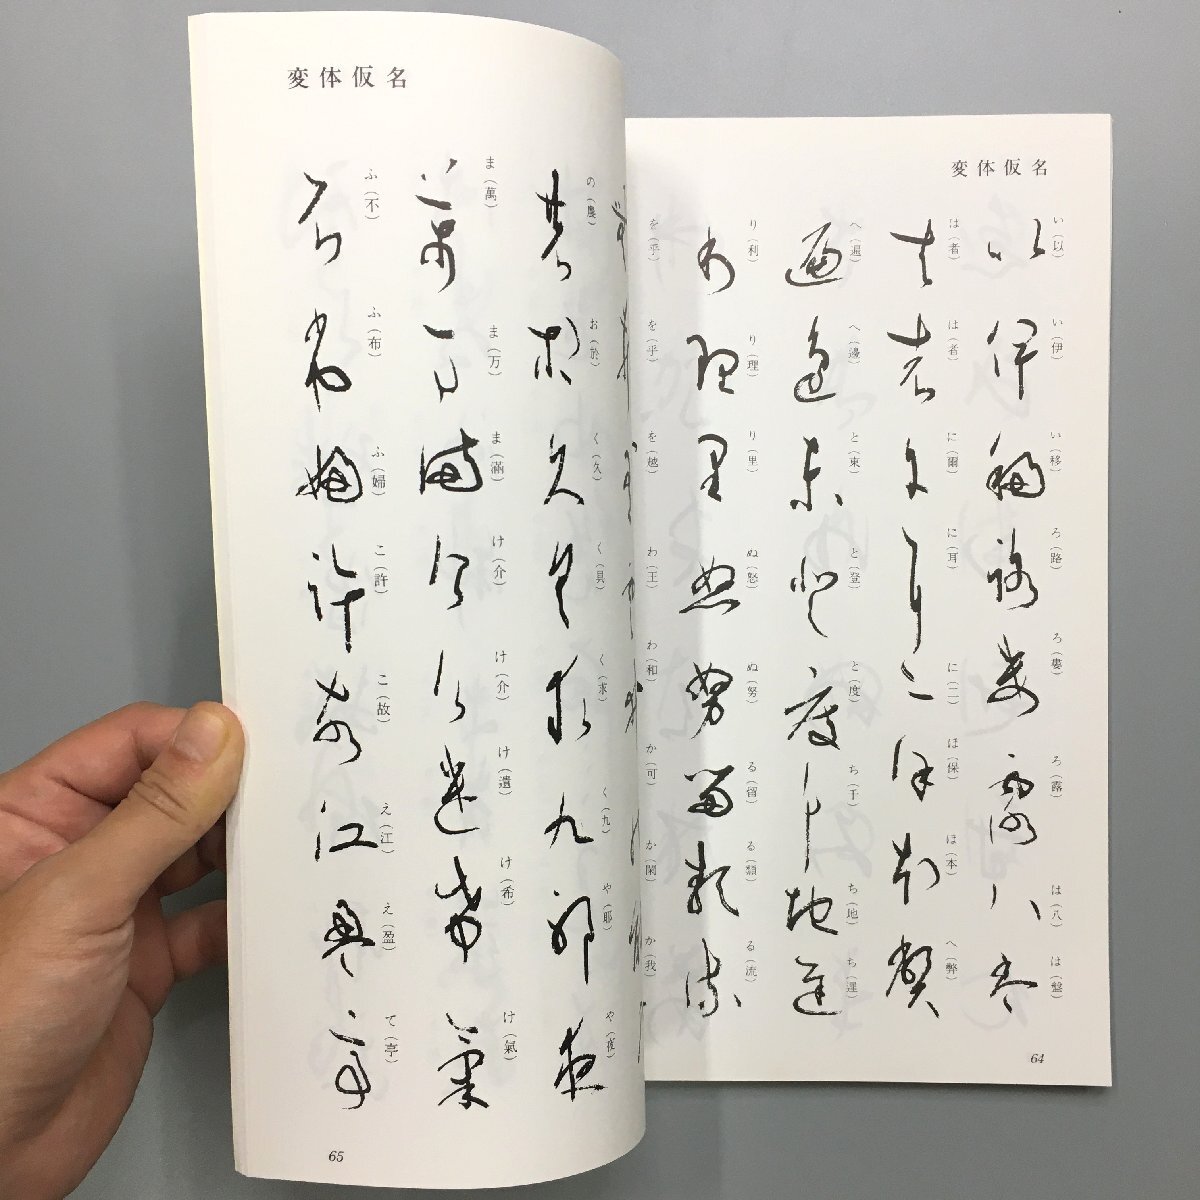 変体仮名
い(以)
い(伊)
い(移)
ろ(路)
ろ(婁)
ろ(露)
は(八)
は(盤)
は(者)
は(者)
に(爾)
に(耳)
に(二)
ほ(保)
ほ(本)
へ(弊)
へ(遍)
へ(邊)
と(東)
と(登)
と(度)
ち(千)
ち(地)
ち(遅)
り(利)
り(理)
り(里)
ぬ(怒)
ぬ(努)
る(留)
る(類)
る(流)
を(乎)
を(乎)
を(越)
わ(王)
わ(和)
か(可)
か(閑)
か(我)
64
変体仮名
の(農)
お(於)
く(久)
く(具)
く(求)
く(九)
や(耶)
や(夜)
ま(萬)
ま(万)
ま(滿)
け(介)
け(介)
け(遺)
け(希)
け(氣)
ふ(不)
ふ(布)
ふ(婦)
こ(許)
こ(故)
え(江)
え(盈)
て(亭)
65